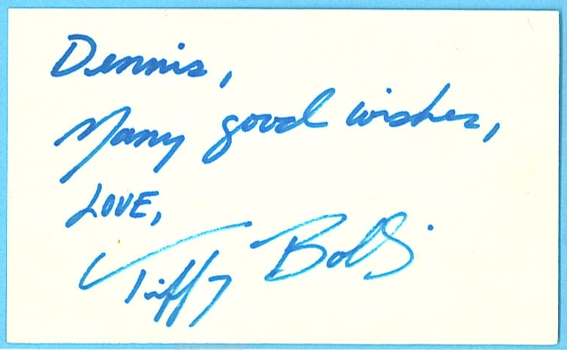 Dennis,
Many good wishes,
LOVE,
Tiffy Bolli